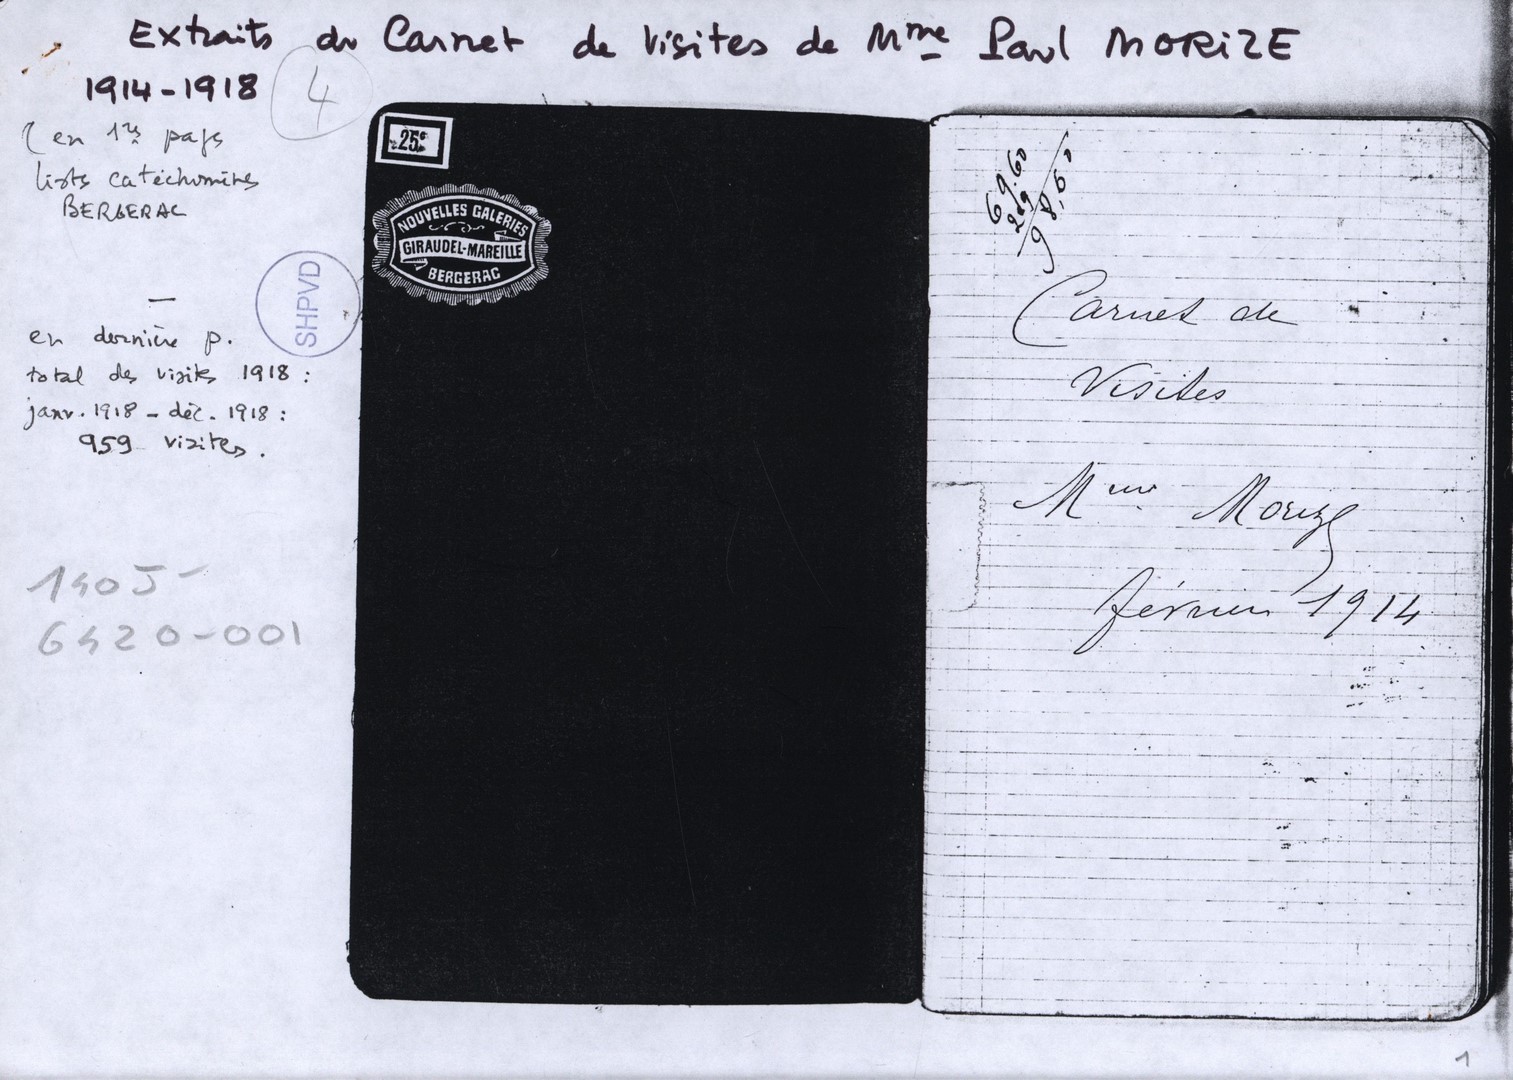 Extraits du Carnet de Visites de Mme Paul MORIZE
1914-1918
4
(en 1res pages
listes catéchumènes
BERGERAC
SHPVD
—
en dernière p.
total des visites 1918 :
janv. 1918 - déc. 1918 :
959 visites.
1405-
6420-001
25c
NOUVELLES GALERIES
GIRAUDEL-MAREILLE
BERGERAC
69.60
98,60
Carnet de
Visites
Mme Morize
février 1914
1